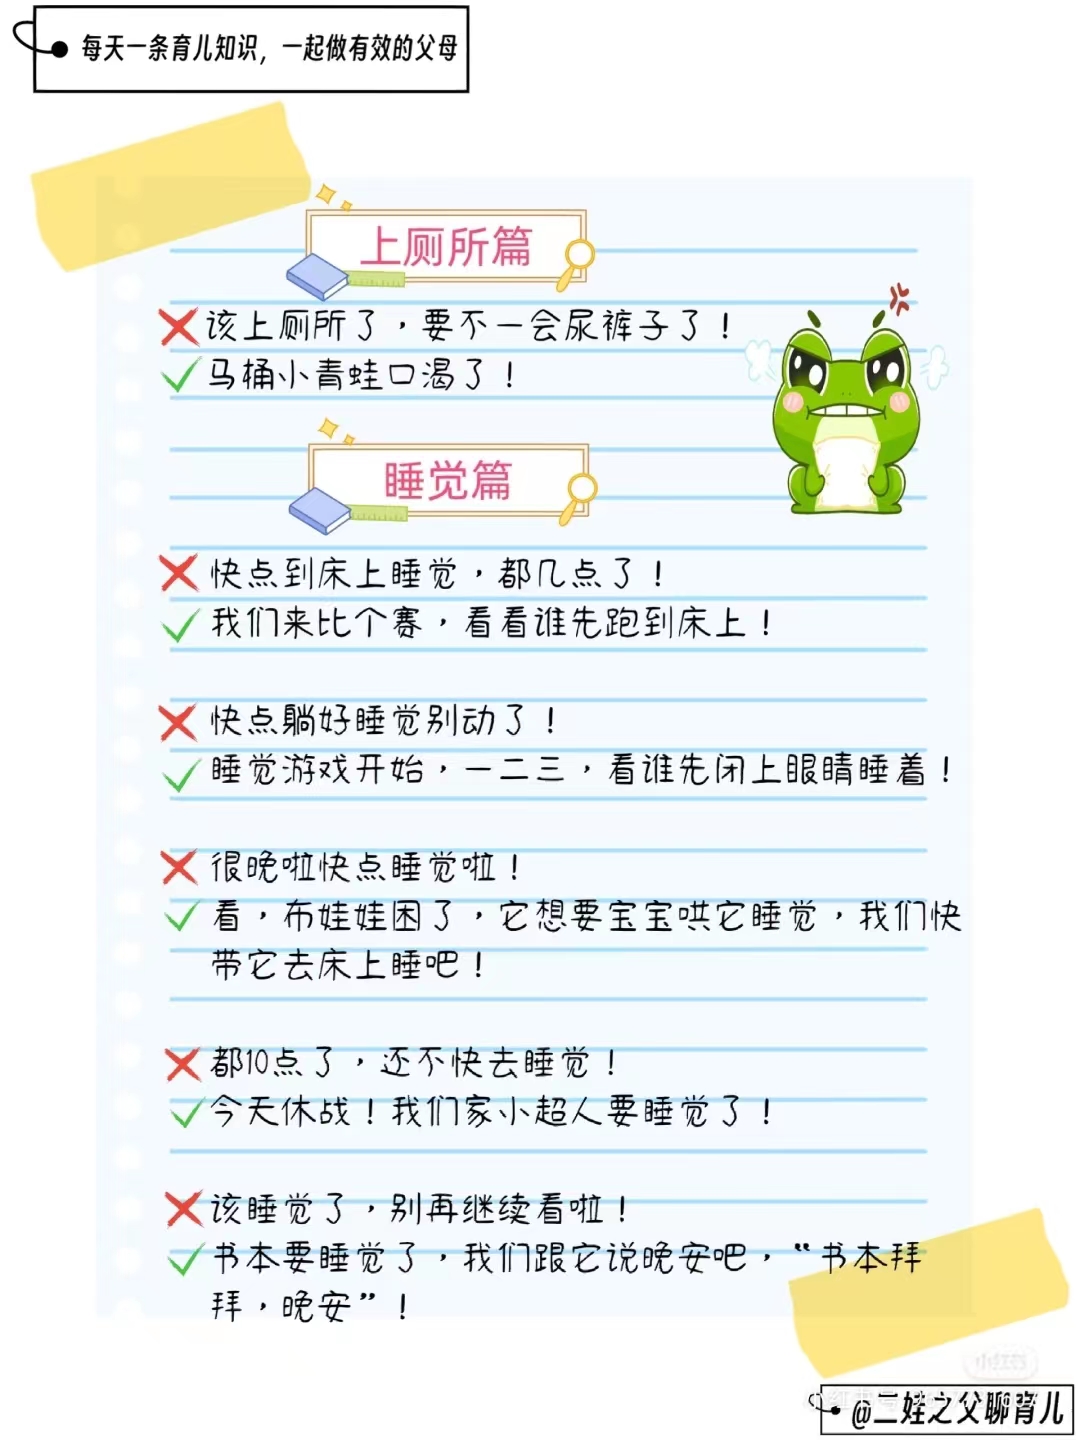 每天一条育儿知识，一起做有效的父母
上厕所篇
该上厕所了，要不一会尿裤子了！
马桶小青蛙口渴了！
睡觉篇
快点到床上睡觉，都几点了！
我们来比个赛，看看谁先跑到床上！
快点躺好睡觉别动了！
睡觉游戏开始，一二三，看谁先闭上眼睛睡着！
很晚啦快点睡觉啦！
看，布娃娃困了，它想要宝宝哄它睡觉，我们快
带它去床上睡吧！
都10点了，还不快去睡觉！
今天休战！我们家小超人要睡觉了！
该睡觉了，别再继续看啦！
书本要睡觉了，我们跟它说晚安吧，“书本拜
拜，晚安”！
小红书
小红书号
@二娃之父聊育儿